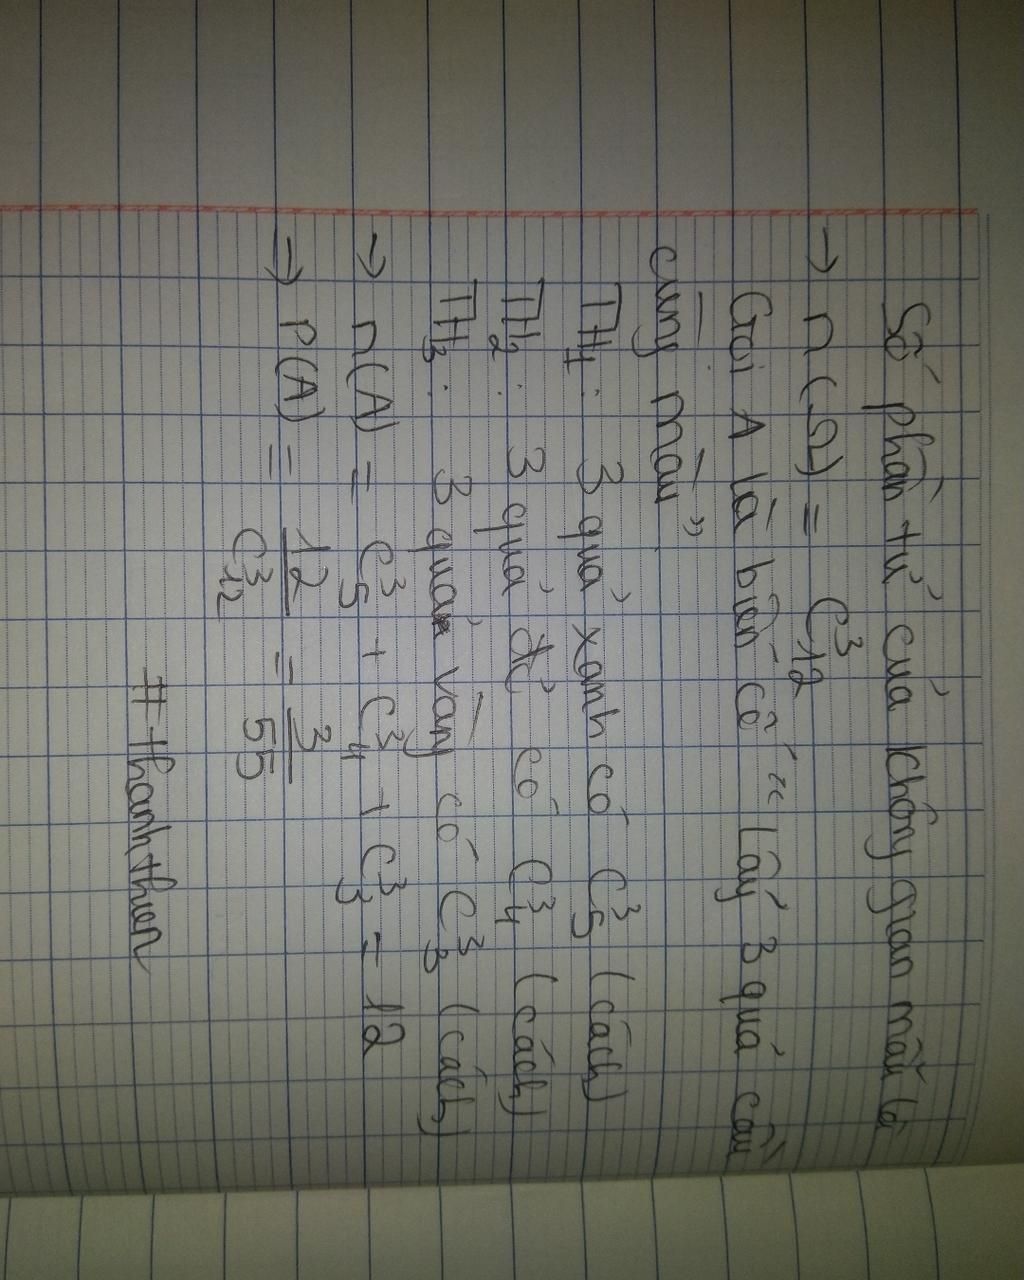 Số phần tử của không gian mẫu là
→ n(Ω) = C³₁₂
Gọi A là biến cố "Lấy 3 quả cầu
cùng màu"
TH₁: 3 quả xanh có C³₅ (cách)
TH₂: 3 quả đỏ có C³₄ (cách)
TH₃: 3 quả vàng có C³₃ (cách)
→ n(A) = C³₅ + C³₄ + C³₃ = 12
→ P(A) = 12/C³₁₂ = 3/55
#thanhthien